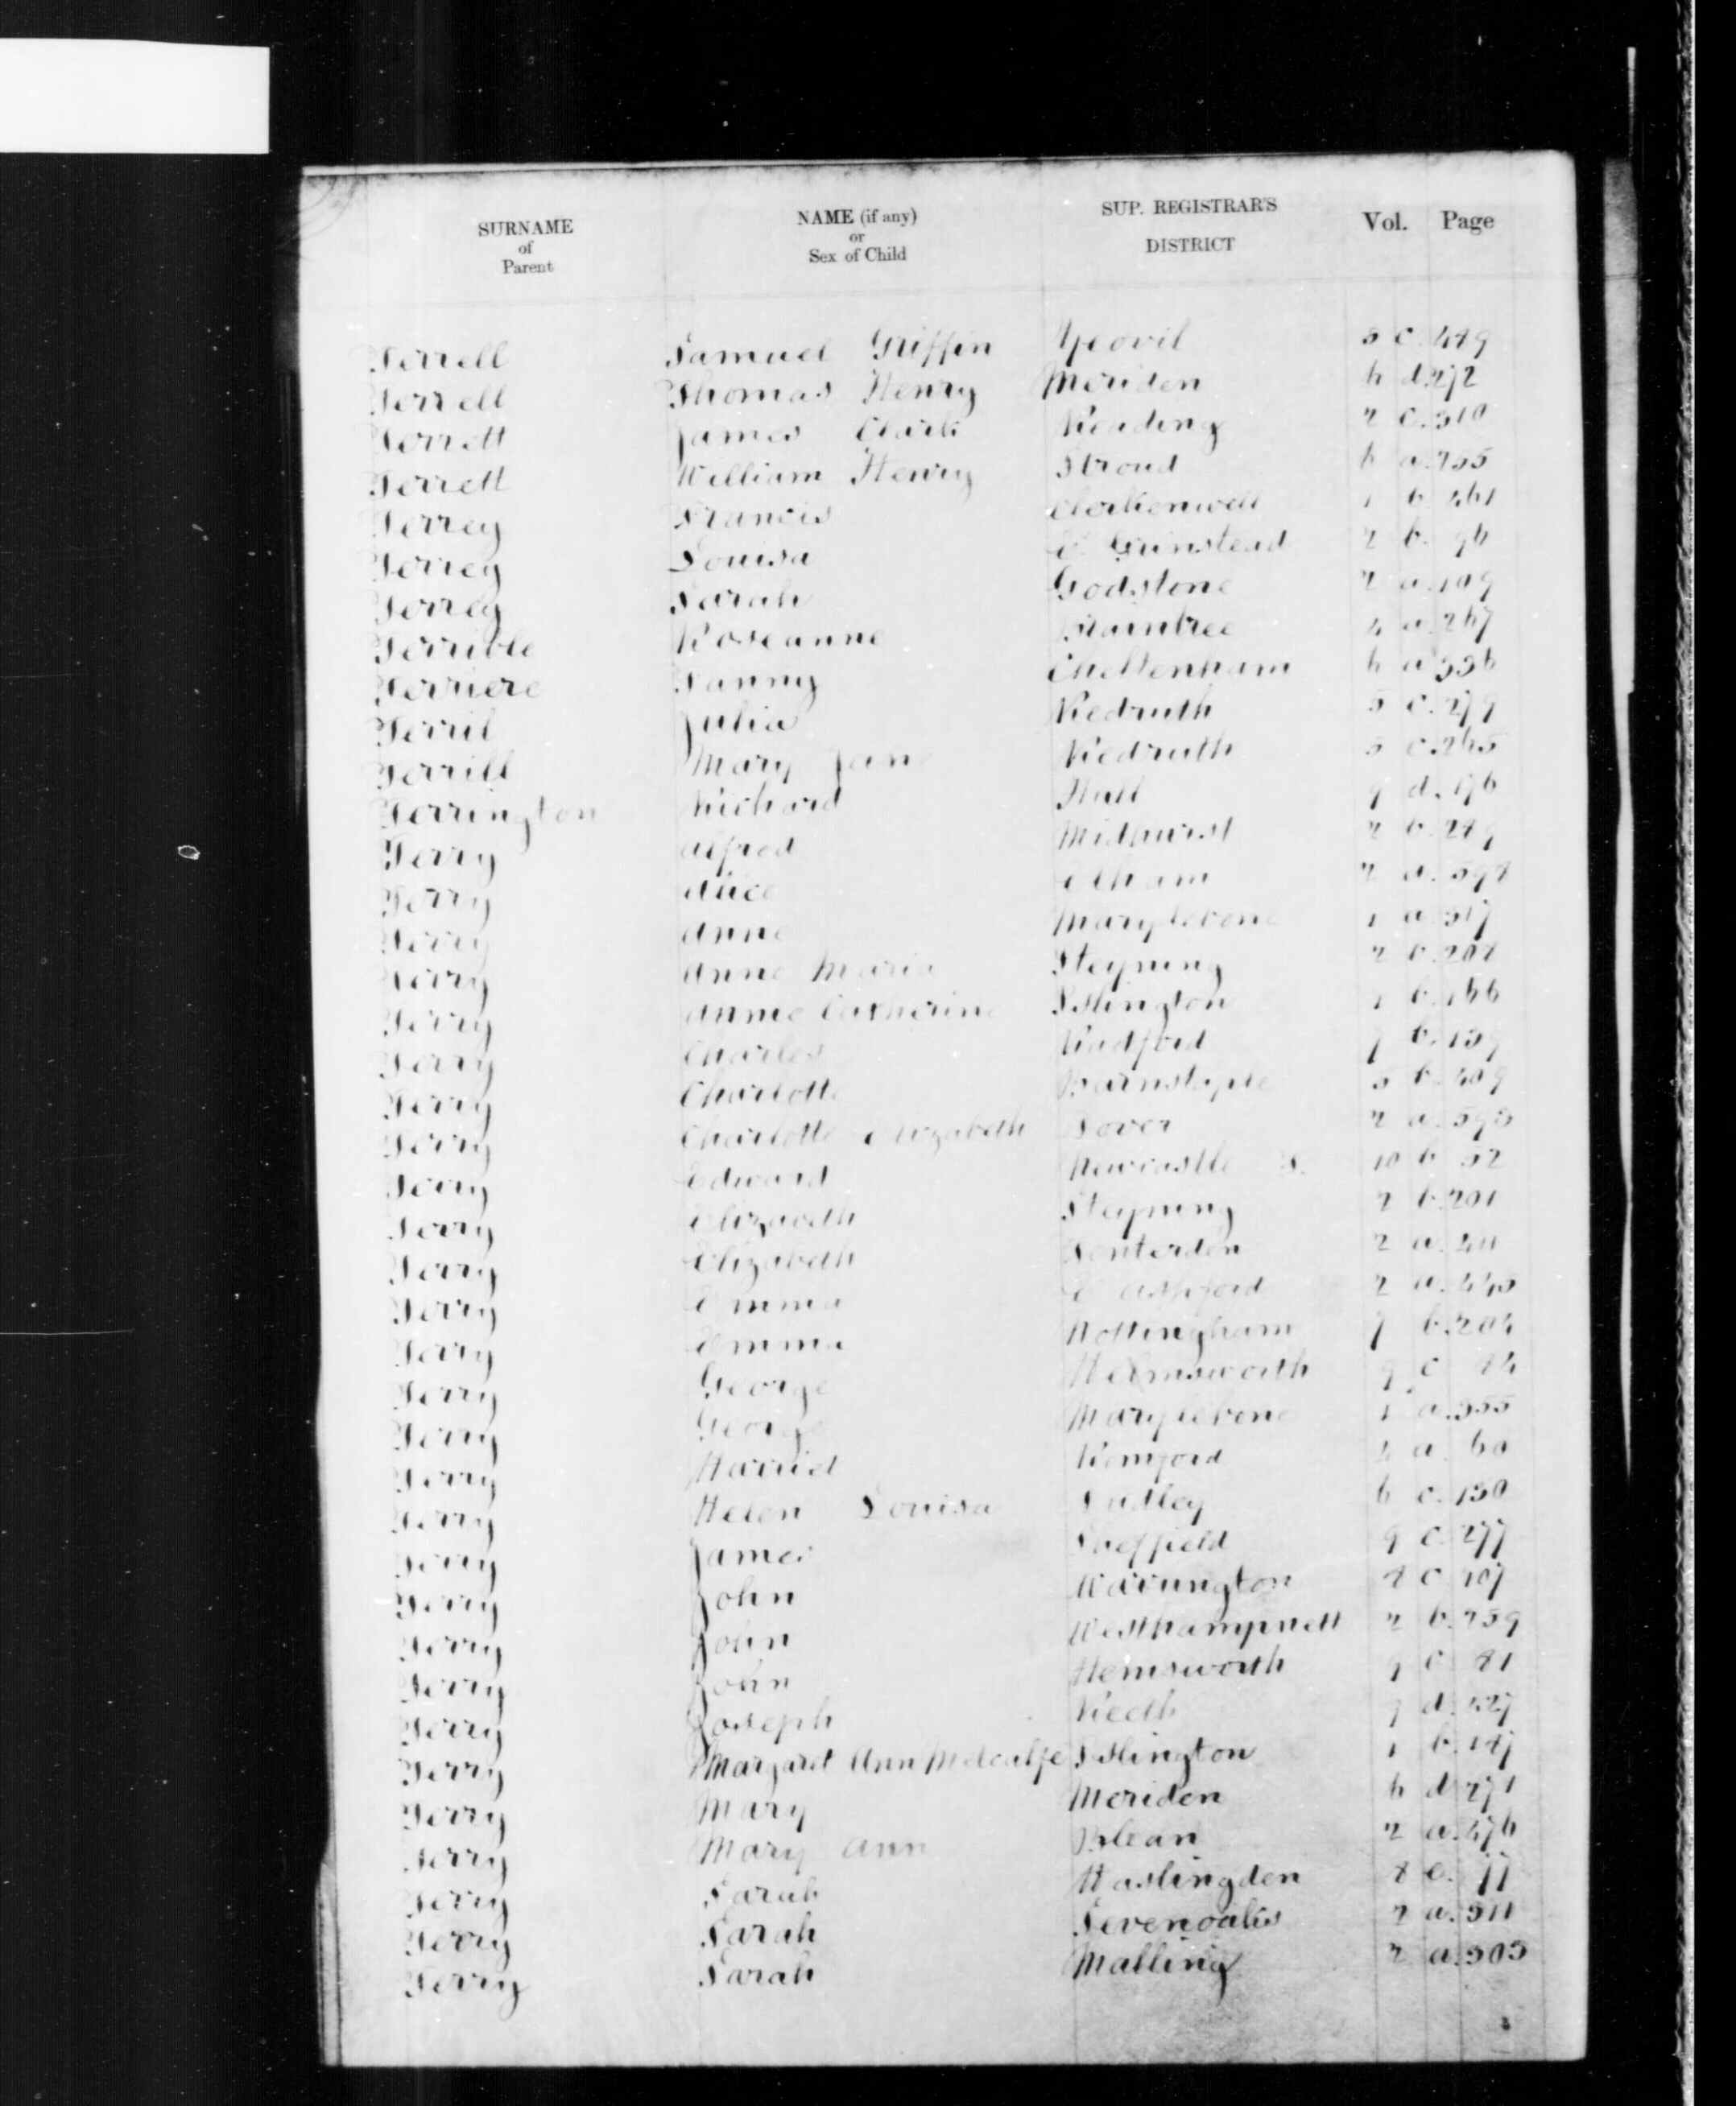 SURNAME of Parent NAME (if any) or Sex of Child SUP. REGISTRAR'S DISTRICT Vol. Page
Terrell Samuel Griffin Yeovil 5 c. 489
Terrell Thomas Henry Meriden 6 d. 272
Terrett James Clark Reading 2 c. 310
Terrett William Henry Stroud 6 a. 255
Terrey Francis Clerkenwell 1 b. 461
Terrey Louisa E. Grinstead 2 b. 96
Terrey Sarah Godstone 2 a. 109
Terrible Roseanne Braintree 4 a. 267
Terriere Fanny Cheltenham 6 a. 336
Terril Julia Redruth 5 c. 279
Terrill Mary Jane Redruth 5 c. 265
Terrington Richard Hull 9 d. 196
Terry Alfred Midhurst 2 b. 289
Terry Alice Elham 2 a. 598
Terry Anne Marylebone 1 a. 517
Terry Anne Maria Steyning 2 b. 208
Terry Annie Catherine Islington 1 b. 166
Terry Charles Radford 7 b. 139
Terry Charlotte Barnstaple 5 b. 409
Terry Charlotte Elizabeth Dover 2 a. 593
Terry Edward Newcastle T. 10 b. 52
Terry Elizabeth Steyning 2 b. 201
Terry Elizabeth Tenterden 2 a. 411
Terry Emma E. Ashford 2 a. 445
Terry Emma Nottingham 7 b. 204
Terry George Hemsworth 9 c. 84
Terry George Marylebone 1 a. 555
Terry Harriet Romford 4 a. 60
Terry Helen Louisa Dudley 6 c. 150
Terry James Sheffield 9 c. 277
Terry John Warrington 8 c. 107
Terry John Westhampnett 2 b. 259
Terry John Hemsworth 9 c. 81
Terry Joseph Reeth 9 d. 427
Terry Margaret Ann Metcalfe Islington 1 b. 147
Terry Mary Meriden 6 d. 271
Terry Mary Ann Blean 2 a. 476
Terry Sarah Haslingden 8 e. 77
Terry Sarah Sevenoaks 2 a. 311
Terry Sarah Malling 2 a. 303